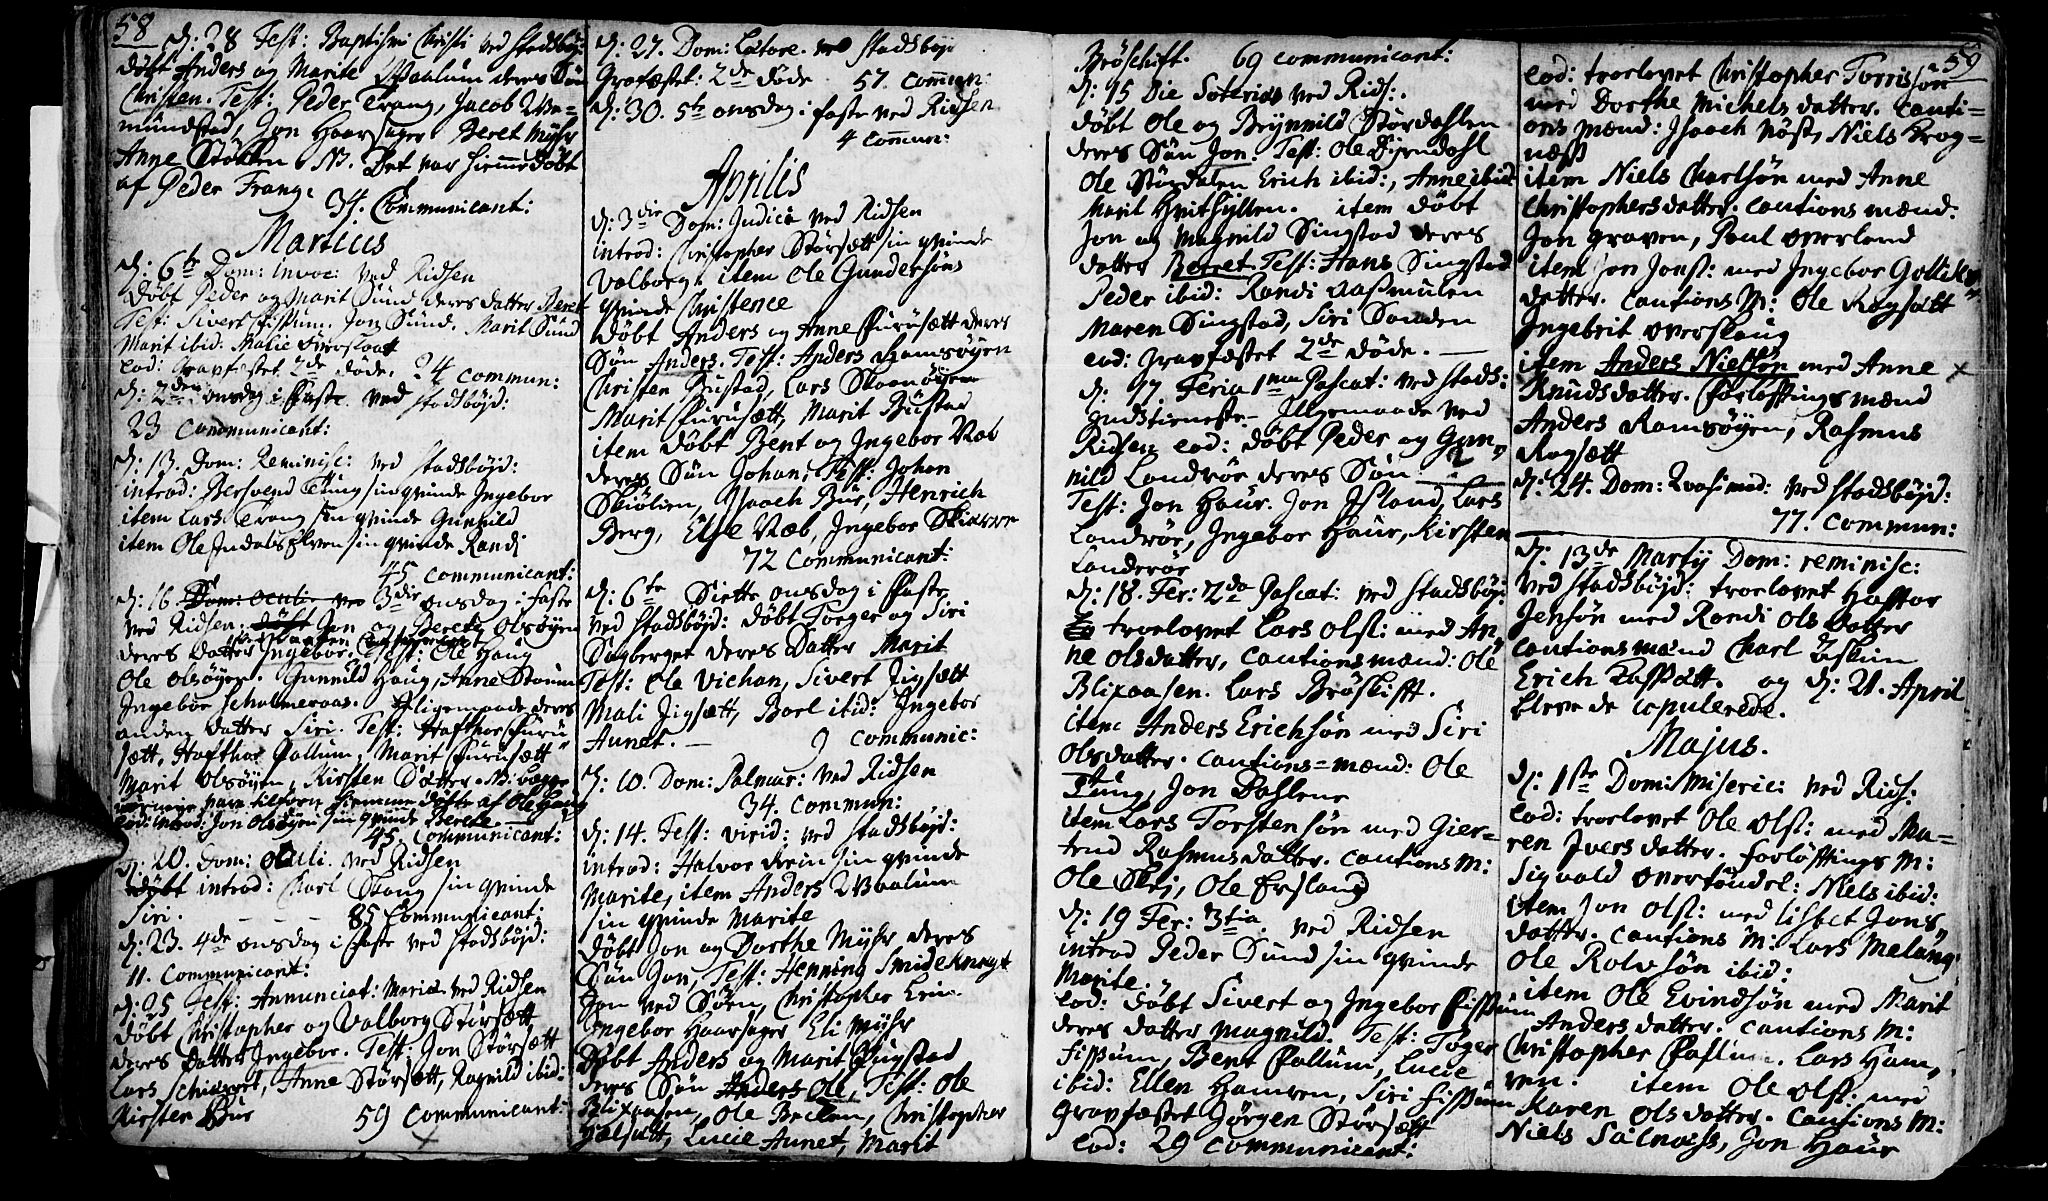 58
d: 28 Fest: Baptismi Christi ved Stadsbøj:
døbt Anders og Marite Waalum deres Søn
Christen. Test: Peder Trang, Jacob
mundstad, Jon Haarsager Beret Myhr
Anne Støkken NB. Det var hiemedøbt
af Peder Frang.
34. Communicant:
Martius
d: 6te Dom: invoc: ved Ridsen
Døbt Peder og Marit Sund deres datter Beret
Test: Sivert Fissum. Jon Sund. Marit Sund
Marit ibid: Malie Overslaatt
eod: Gravfæstet 2de døde. 24 commun:
d: 2den onsdag i Faste ved Stadsbøjd:
23 Communicant:
d: 13. Dom: Reminisc: ved Stadsbøjd:
introd: Bersvend Tung sin qvinde Ingebor
item Lars Trang sin qvinde Gunnild
item Ole Indals Elven sin qvinde Randi
45 communicant:
d: 16 Dom: Oculi ved 3die onsdag i Faste
ved Ridsen: døbt Jon og Berete Olsøyen
deres Datter Ingebor. Test: Ole Haug
Ole Olsøyen. Gunnild Haug, Anne
Ingebor Schalmeraas. Alligemaade deres
anden datter Siri. Test: Hafthor Furu
sætt, Hafthor Fallum, Marit Furusætt
Marit Olsøyen, Kirsten Sætter. NB: begge
børnene vare tilforn hiemmedøbte af Ole Haug
eod: introd: Jon Olsøyen sin qvinde Berete.
45 Communicant:
d: 20. Dom: Oculi. ved Ridsen
døbt introd: Charl Skaug sin qvinde
Siri. 85 Communicant:
d: 23. 4de onsdag i Faste ved Stadsbøjd:
11. Communicant:
d: 25 Fest: Annunciat: Mariæ ved Ridsen
døbt Christopher og Valborg Størsætt
deres Datter Ingebor. Test: Jon Størsætt
Lars Schierret, Anne Størsætt, Ragnild ibid:
Kirsten Bur 59 Communicant:
d: 27. Dom: Lætare. ved Stadsbøjd
Gravfæstet 2de døde. 57. commun:
d: 30. 5te onsdag i faste ved Ridsen
4 commun:
Aprilis
d: 3die Dom: Judica ved Ridsen
introd: Christopher Størsætt sin qvinde
Valborg. item Ole Gundersøns
qvinde Christence
Døbt Anders og Anne Furusætt deres
Søn Anders. Test: Anders Ramsøyen
Christen Bustad, Lars Skoensøyen
Marit Furusætt, Marit Bustad
item døbt Bent og Ingebor Ræb
deres Søn Johan, Test: Johan
Skiølien, Isaach Bur, Henrich
Berg, Else Ræb, Ingebor
72 Communicant:
d: 6te Siette onsdag i Faste
ved Stadsbøjd: døbt Torger og Siri
Sagberget deres Datter Marit
Test: Ole Vichan, Sivert Jigsætt
Mali Jigsætt, Barl ibid: Ingebor
Aunet. 9 communic:
d: 10. Dom: Palmar: ved Ridsen
34. Commun:
d: 14. Fest: virid: ved Stadsbøjd:
introd: Halvor Grin sin qvinde
Marite, item Anders Waalum
sin qvinde Marite
Døbt Jon og Dorthe Myhr deres
Søn Jon, Test: Henning Smideknegt
Jon ved Søen, Christopher Lein.
Ingebor Haarsager Eli Myhr
Døbt Anders og Marit Rugstad
deres Søn Anders Ole, Test: Ole
Blixaasen, Ole Becken, Christopher
Hælsætt, Lucie Aunet, Marit
Brøschift. 69 communicant:
d: 15 Die Soterias ved Rids:
døbt Ole og Brynnild Størdahlen
deres Søn Jon. Test: Ole Giendahl
Ole Størdalen Erich ibid:, Anne ibid:
Marit Hvithyllen. item døbt
Jon og Magnild Singstad deres
datter Berret. Test: Hans Singstad
Peder ibid: Randi Aasmulen
Maren Singstad, Siri Sanden
eod: gravfæstet 2de døde.
d: 17. Feria 1ma Pascat: ved Stads:
gudstieneste. Iligemaade ved
Ridsen eod: døbt Peder og Gun
nild Landrøe deres Søn
Test: Jon Haur. Jon Island, Lars
Landrøe, Ingebor Haur, Kirsten
Landerøe
d: 18. Fer: 2da Pascat: ved Stadsbøj:
Eo troelovet Lars Olss: med An
ne Olsdatter, cautionsmænd: Ole
Blixaasen. Lars Brøskifft.
item Anders Erichsøn med Siri
Olsdatter. cautions=mænd: Ole
Tung, Jon Dahlene
item Lars Torstensøn med Gier=
trud Rasmusdatter. cautions M:
Ole Skej, Ole Eysland
d: 19 Fer: 3tia. ved Ridsen
introd Peder Sund sin qvinde
Marite.
eod: døbt Sivert og Ingebor Fissum
deres datter Magnild. Test: Toger
Fissum, Bent Fallum, Lucie
ibid: Ellen Hamren, Siri Fissum
gravfæstet Jørgen Størsætt
eod: 29 communicant:
59
eod: troelovet Christopher Torrissøn
med Dorthe Michelsdatter. cauti=
ons mænd: Isaach Nøst, Niels Krog=
næss
item Niels Charlsøn med Anne
Christophersdatter. cautions mænd:
Jon graven, Poul Overland
item Jon Jonss: med Ingebor
datter. cautions M: Ole Rogsætt
Ingebrit Overskaug
item Anders Nielsøn med Anne x
Knudsdatter. Forløftings mænd
Anders Ramsøyen, Rasmus
Rogsætt
d: 24. Dom: Qvasimod: ved Stadsbøjd:
77. commun:
d: 13de Martij Dom: reminisc:
ved Stadsbøjd: troelovet Haftor
Jensøn med Randi Olsdatter
cautionsmænd Charl
Erich og d: 21. April
bleve de copulerede.
Majus.
d: 1ste Dom: Miseric: ved Rids:
eod: troelovet Ole Olss: med Ma=
ren Iversdatter. forløfftings M:
Sigvald Overtøndel: Niels ibid:
item Jon Olss: med Lisbet Jons
datter. cautions M: Lars Meland
Ole Rolvsøn ibid:
item Ole Evindsøn med Marit
Andersdatter. cautions M:
Christopher Lars Ham
ren. item Ole Olss: med
Karen Olsdatter. cautions M:
Niels Salnæss, Jon Haur